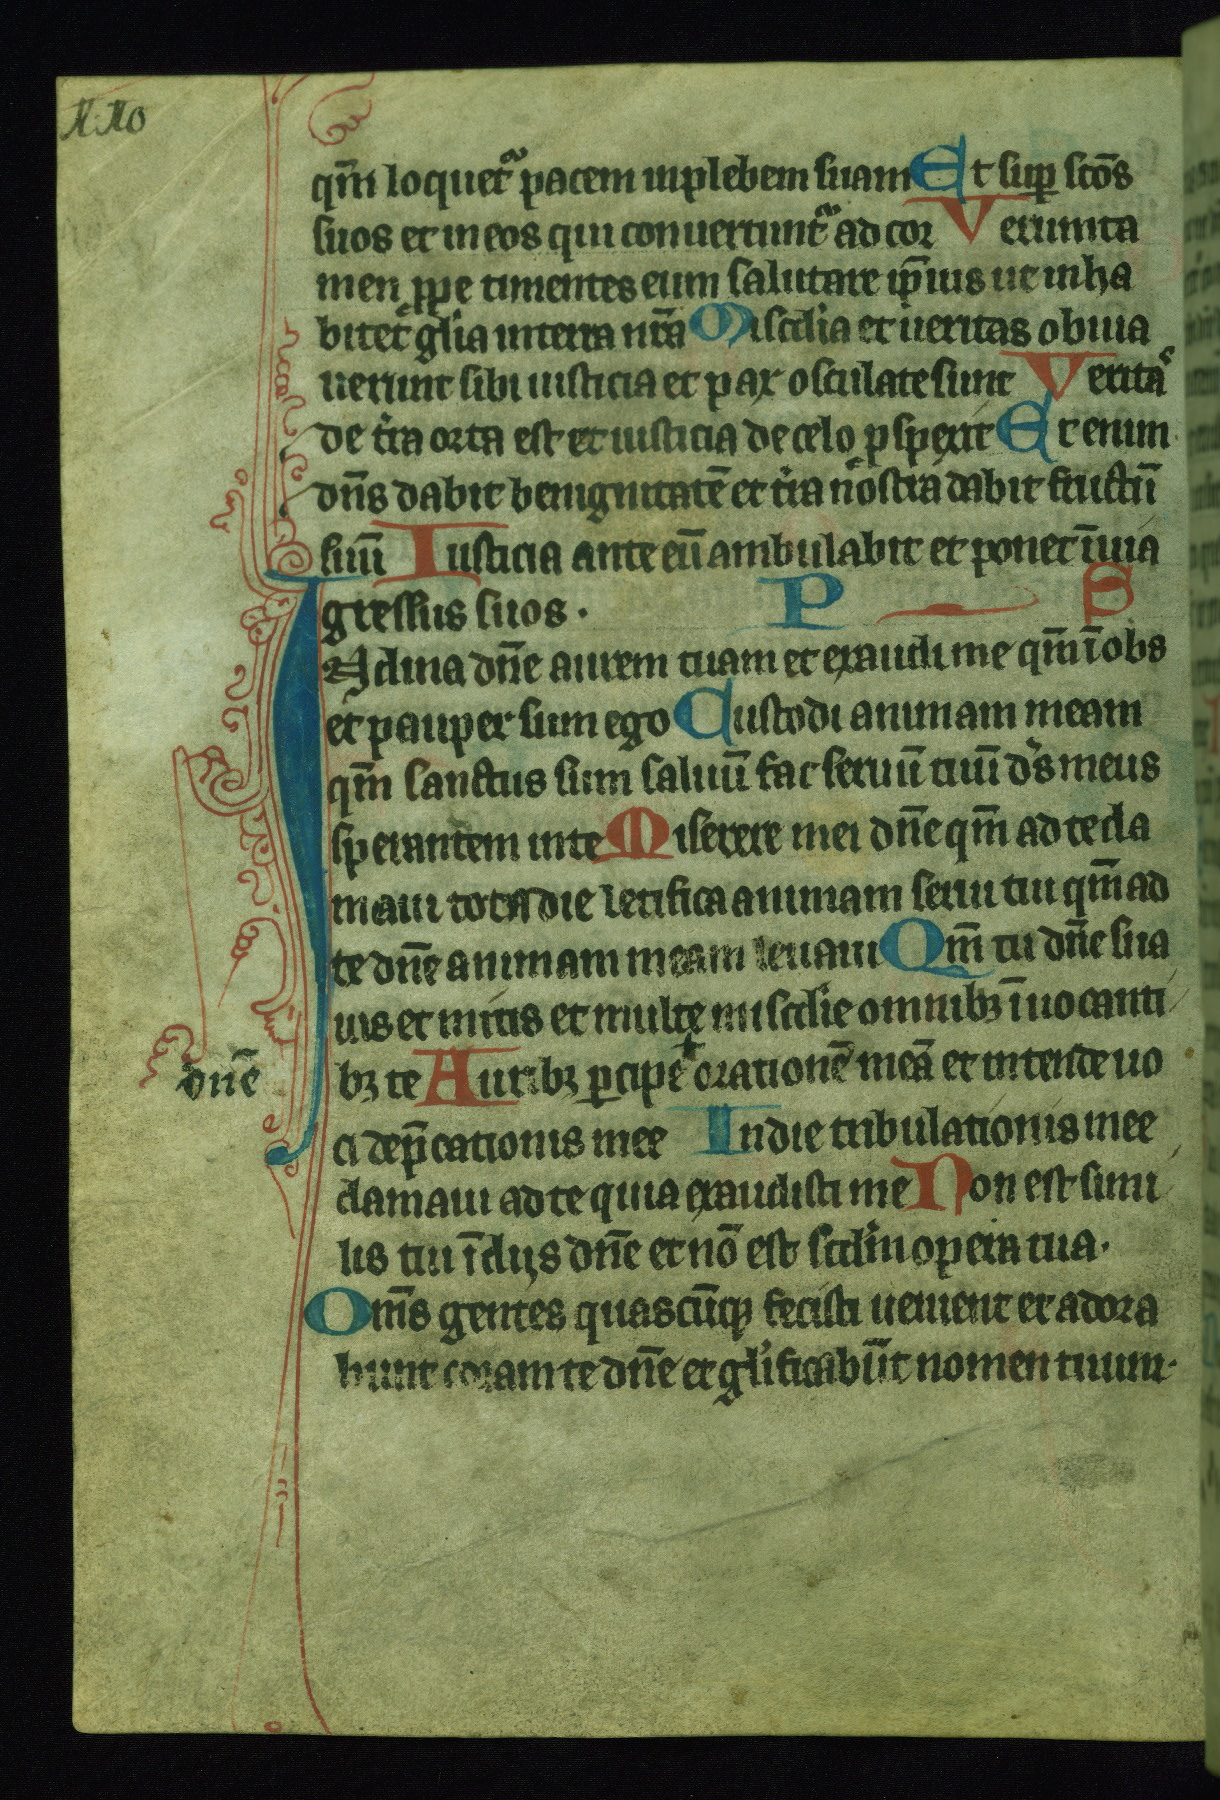 qm̄ loquet᷑ pacem inplebem suam Et sup̲ sc̄os
suos et in eos qui conuertunt᷑ ad cor Verumta
men ꝓpe timentes eum salutare ip̄ius ut inha
bitet gl̄ia interra nr̄a Misc̄dia et ueritas obuia
uerunt sibi iusticia et pax osculate sunt Veritas
de t̄ra orta est et iusticia de celo ꝓspexit Et enim
dn̄s dabit benignitatē et t̄ra nostra dabit fructū
suū Iusticia ante eū ambulabit et ponet ī uia
gressus suos. P S
Inclina dn̄e aurem tuam et exaudi me qm̄ īobs
et pauper sum ego Custodi animam meam
qm̄ sanctus sum saluū fac seruū tuū ds̄ meus
sperantem inte Miserere mei dn̄e qm̄ ad te cla
maui tota die letifica animam serui tui qm̄ ad
te dn̄e animam meam leuaui Qm̄ tu dn̄e sua
uis et mitis et multe misc̄die omnibꝫ īuocanti
dn̄e
bꝫ te Auribꝫ ꝑcipe + orationē meā et intende uo
ci dep̄cationis mee In die tribulationis mee
clamaui ad te quia exaudisti me Non est simi
lis tui ī dijs dn̄e et nō est scd̄m opera tua.
Om̄s gentes quascūqꝫ fecisti uenient et adora
bunt coram te dn̄e et gl̄ificabūt nomen tuum.